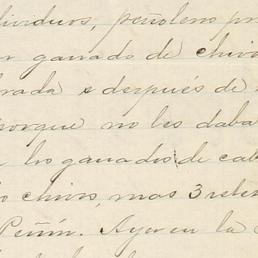 dividuos, peñolens pr
ganado de chivo
rada e después de
porque no les daba
los ganados de cab
chivos, mas 3 reses
Peñín. Ayer en la